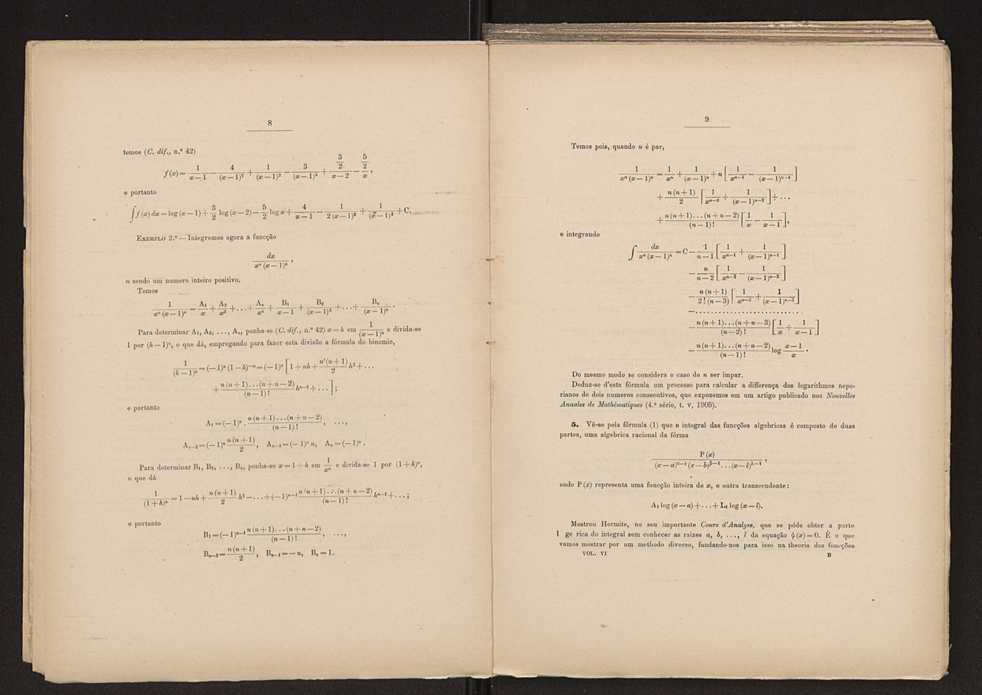 8
temos (C. dif., n.º 42)
f(x) = 1/(x−1) − 4/(x−1)² + 1/(x−1)³ − 3/(x−1)⁴ + (3/2)/(x−2) − (5/2)/x,
e portanto
∫ f(x) dx = log (x−1) + 3/2 log (x−2) − 5/2 log x + 4/(x−1) − 1/(2(x−1)²) + 1/(x−1)³ + C.
EXEMPLO 2.º — Integremos agora a funcção
dx/(xⁿ (x−1)ⁿ) ,
n sendo um numero inteiro positivo.
Temos
1/(xⁿ (x−1)ⁿ) = A₁/x + A₂/x² + . . . + Aₙ/xⁿ + B₁/(x−1) + B₂/(x−1)² + . . . + Bₙ/(x−1)ⁿ .
Para determinar A₁, A₂, . . ., Aₙ, ponha-se (C. dif., n.º 42) x = h em 1/(x−1)ⁿ e divida-se
1 por (h−1)ⁿ, o que dá, empregando para fazer esta divisão a fórmula do binomio,
1/(h−1)ⁿ = (−1)ⁿ (1−h)⁻ⁿ = (−1)ⁿ [ 1 + nh + n(n+1)/2 h² + . . .
+ n(n+1) . . . (n+n−2)/(n−1)! hⁿ⁻¹ + . . . ] ;
e portanto
A₁ = (−1)ⁿ . n(n+1) . . . (n+n−2)/(n−1)! , . . .,
Aₙ₋₂ = (−1)ⁿ n(n+1)/2 , Aₙ₋₁ = (−1)ⁿ n, Aₙ = (−1)ⁿ .
Para determinar B₁, B₂, . . ., Bₙ, ponha-se x = 1 + h em 1/xⁿ e divida-se 1 por (1+h)ⁿ,
o que dá
1/(1+h)ⁿ = 1 − nh + n(n+1)/2 h² − . . . + (−1)ⁿ⁻¹ n(n+1) . . . (n+n−2)/(n−1)! hⁿ⁻¹ + . . . ;
e portanto
B₁ = (−1)ⁿ⁻¹ n(n+1) . . . (n+n−2)/(n−1)! , . . .,
Bₙ₋₂ = n(n+1)/2 , Bₙ₋₁ = −n, Bₙ = 1.
9
Temos pois, quando n é par,
1/(xⁿ (x−1)ⁿ) = 1/xⁿ + 1/(x−1)ⁿ + n [ 1/xⁿ⁻¹ − 1/(x−1)ⁿ⁻¹ ]
+ n(n+1)/2 [ 1/xⁿ⁻² + 1/(x−1)ⁿ⁻² ] + . . .
+ n(n+1) . . . (n+n−2)/(n−1)! [ 1/x − 1/(x−1) ],
e integrando
∫ dx/(xⁿ (x−1)ⁿ) = C − 1/(n−1) [ 1/xⁿ⁻¹ + 1/(x−1)ⁿ⁻¹ ]
− n/(n−2) [ 1/xⁿ⁻² − 1/(x−1)ⁿ⁻² ]
− n(n+1)/(2! (n−3)) [ 1/xⁿ⁻³ + 1/(x−1)ⁿ⁻³ ]
− . . . . . . . . . . . . . . . . . . . . . . . .
− n(n+1) . . . (n+n−3)/(n−2)! [ 1/x + 1/(x−1) ]
− n(n+1) . . . (n+n−2)/(n−1)! log (x−1)/x .
Do mesmo modo se considera o caso de n ser impar.
Deduz-se d'esta fórmula um processo para calcular a differença dos logarithmos nepe-
rianos de dois numeros consecutivos, que expozemos em um artigo publicado nos Nouvelles
Annales de Mathématiques (4.ª série, t. V, 1905).
5. Vê-se pela fórmula (1) que o integral das funcções algebricas é composto de duas
partes, uma algebrica racional da fórma
P(x)/((x−a)ᵅ⁻¹ (x−b)ᵝ⁻¹ . . . (x−l)^(λ−1)) ,
onde P(x) representa uma funcção inteira de x, e outra transcendente:
A₁ log (x−a) + . . . + L₁ log (x−l).
Mostrou Hermite, no seu importante Cours d'Analyse, que se póde obter a parte
l ge rica do integral sem conhecer as raizes a, b, . . ., l da equação ψ(x) = 0. É o que
vamos mostrar por um methodo diverso, fundando-nos para isso na theoria das funcções
VOL. VI B